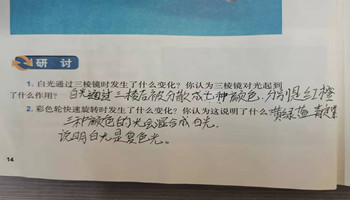 研讨
1. 白光通过三棱镜时发生了什么变化？你认为三棱镜对光起到
了什么作用？ 白光通过三棱后被分散成七种颜色.分别是红橙
2. 彩色轮快速旋转时发生了什么变化？你认为这说明了什么 黄绿蓝靛紫
三种颜色的光会混合成白光.
说明白光是复色光。
14